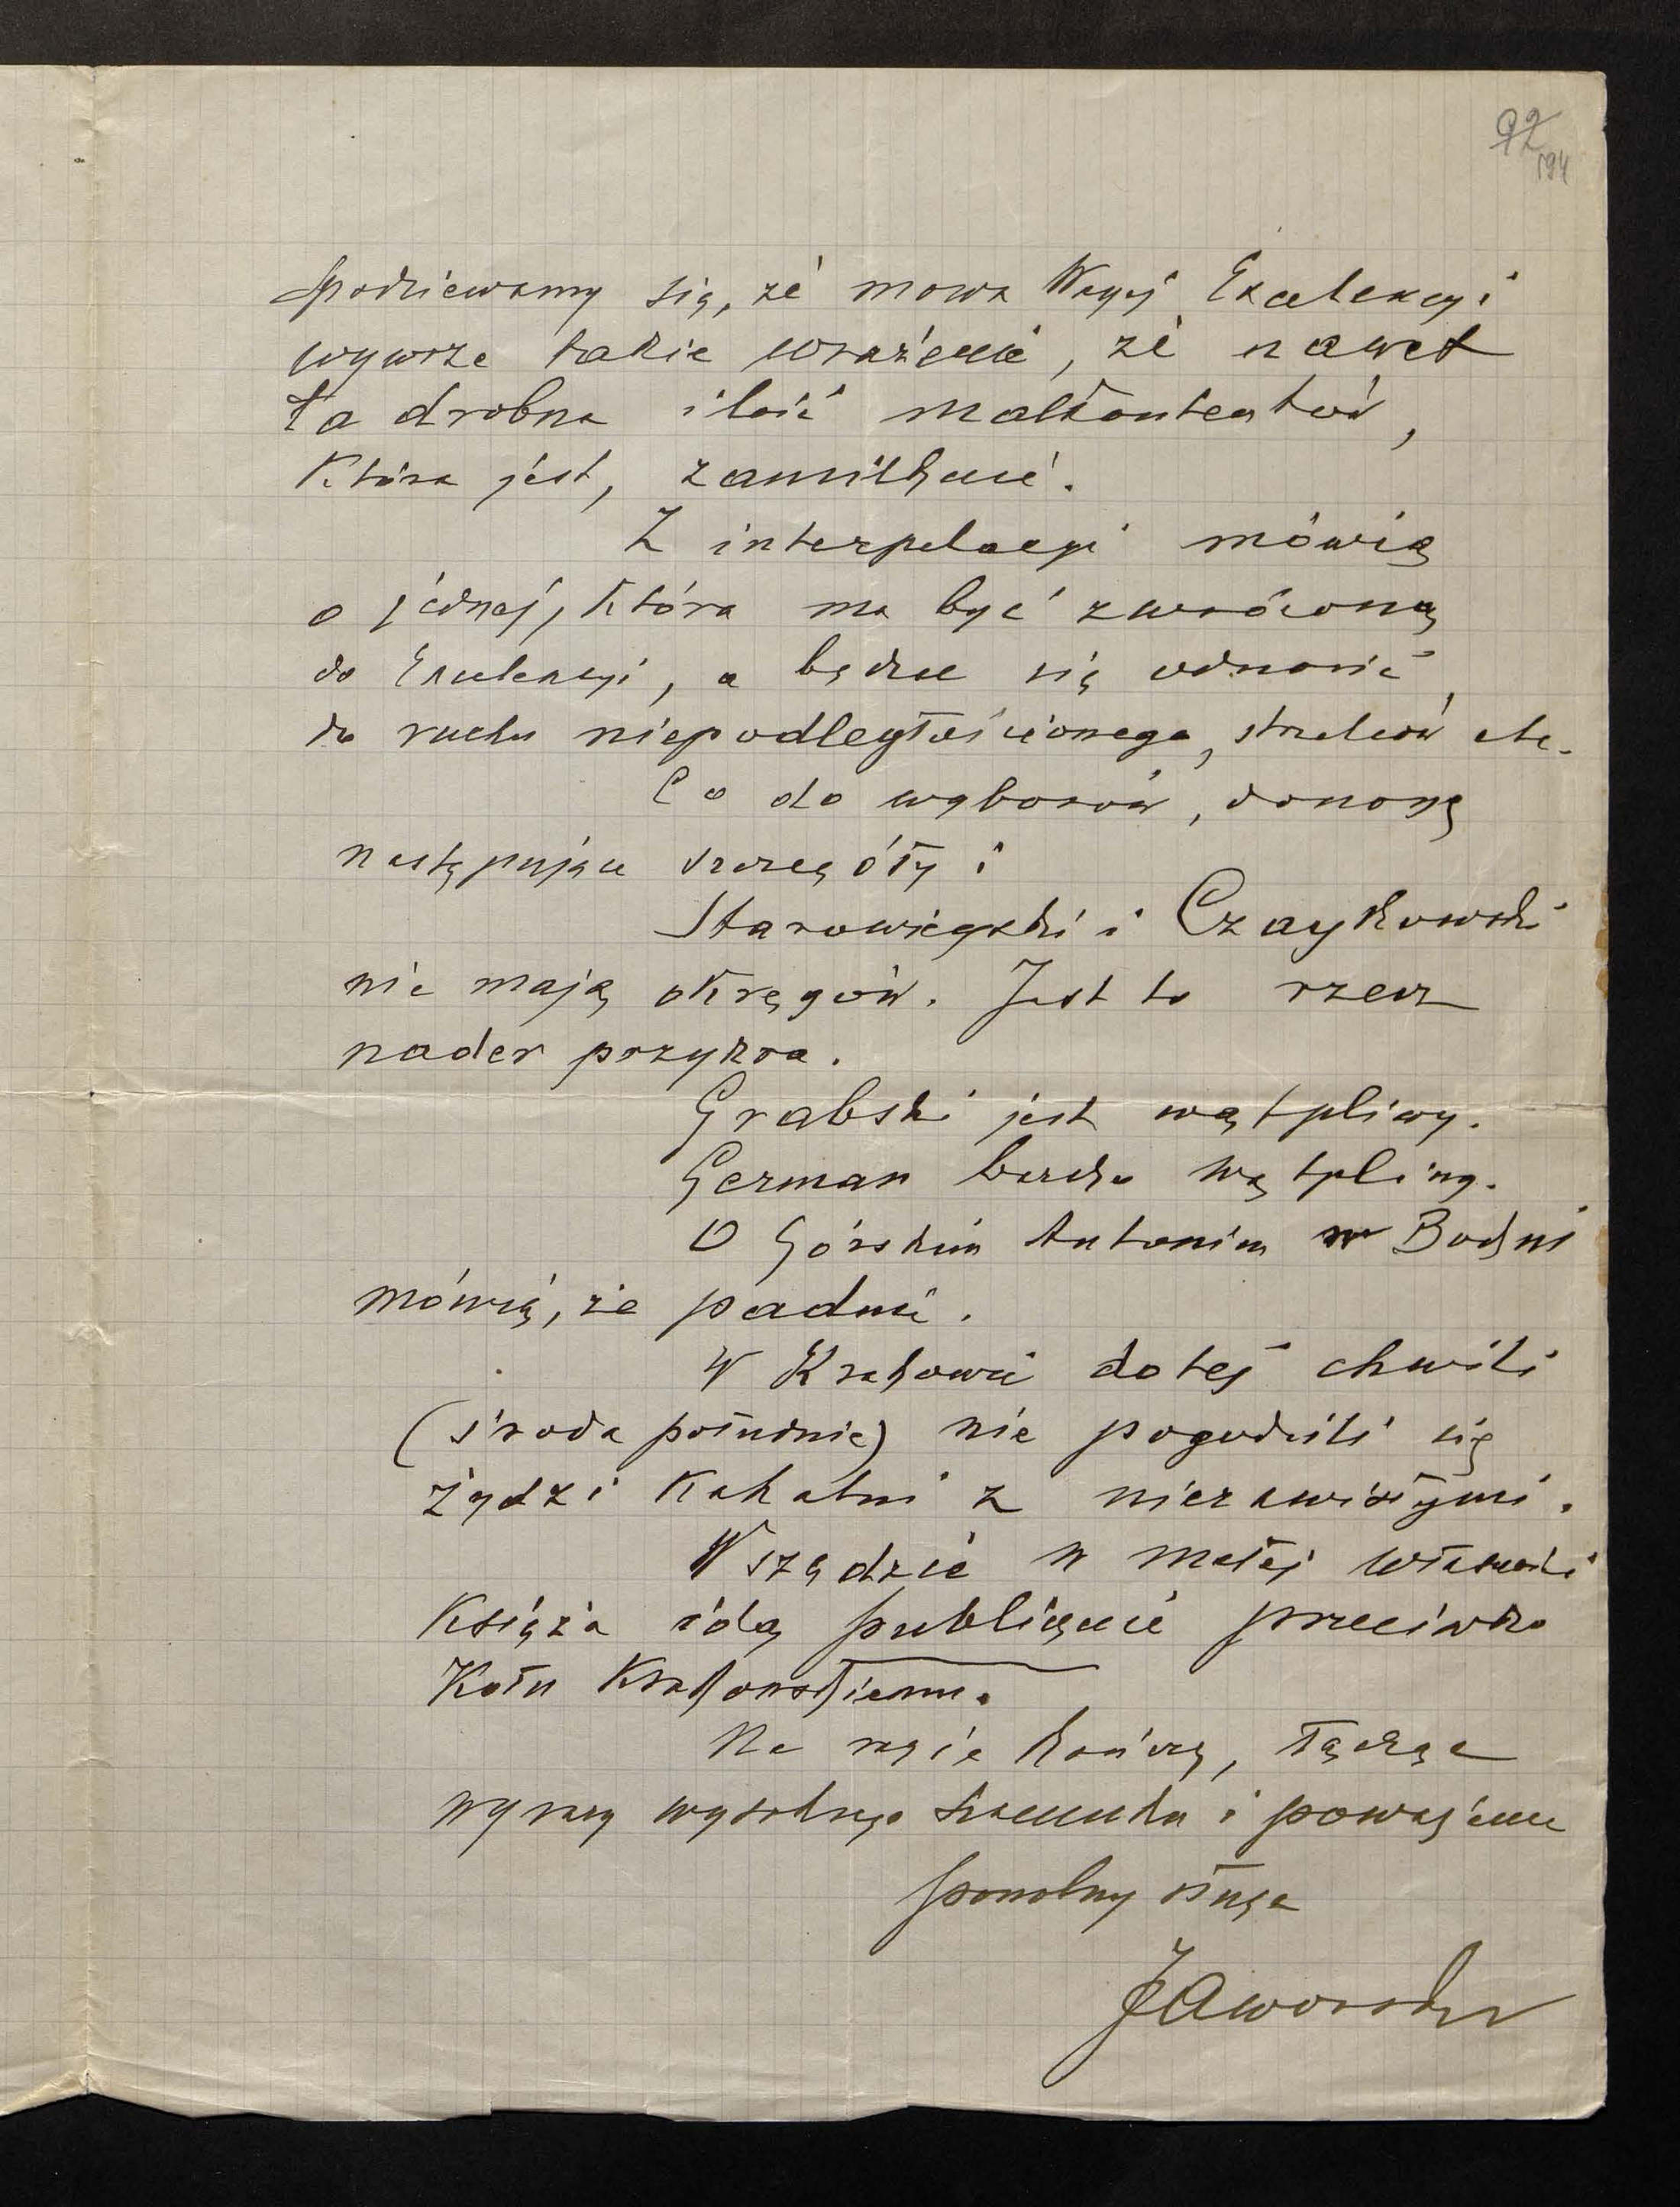 92
194
Spodziewamy się, że mowa Waszej Excelencyi
wywrze takie wrażenie, że nawet
ta drobna ilość malkontentów,
która jest, zamilknie.
Z interpelacyi mówią
o jednej, która ma być zwróconą
do Excelencyi, a będzie się odnosić
do ruchu niepodległościowego, strzelców etc.
Co do wyborów, donoszę
następujące szczegóły:
Starowieyski i Czaykowski
nie mają okręgów. Jest to rzecz
nader przykra.
Grabski jest wątpliwy.
German bardzo wątpliwy.
O Górskim Antonim w Bochni
mówią, że padnie.
W Krakowie do tej chwili
(środa południe) nie pogodzili się
żydzi kahalni z niezawisłymi.
Wszędzie w małej własności
księża idą publicznie przeciwko
Kołu Krakowskiemu.
Na razie kończę, łącząc
wyrazy wysokiego szacunku i poważania
powolny sługa
Jaworski